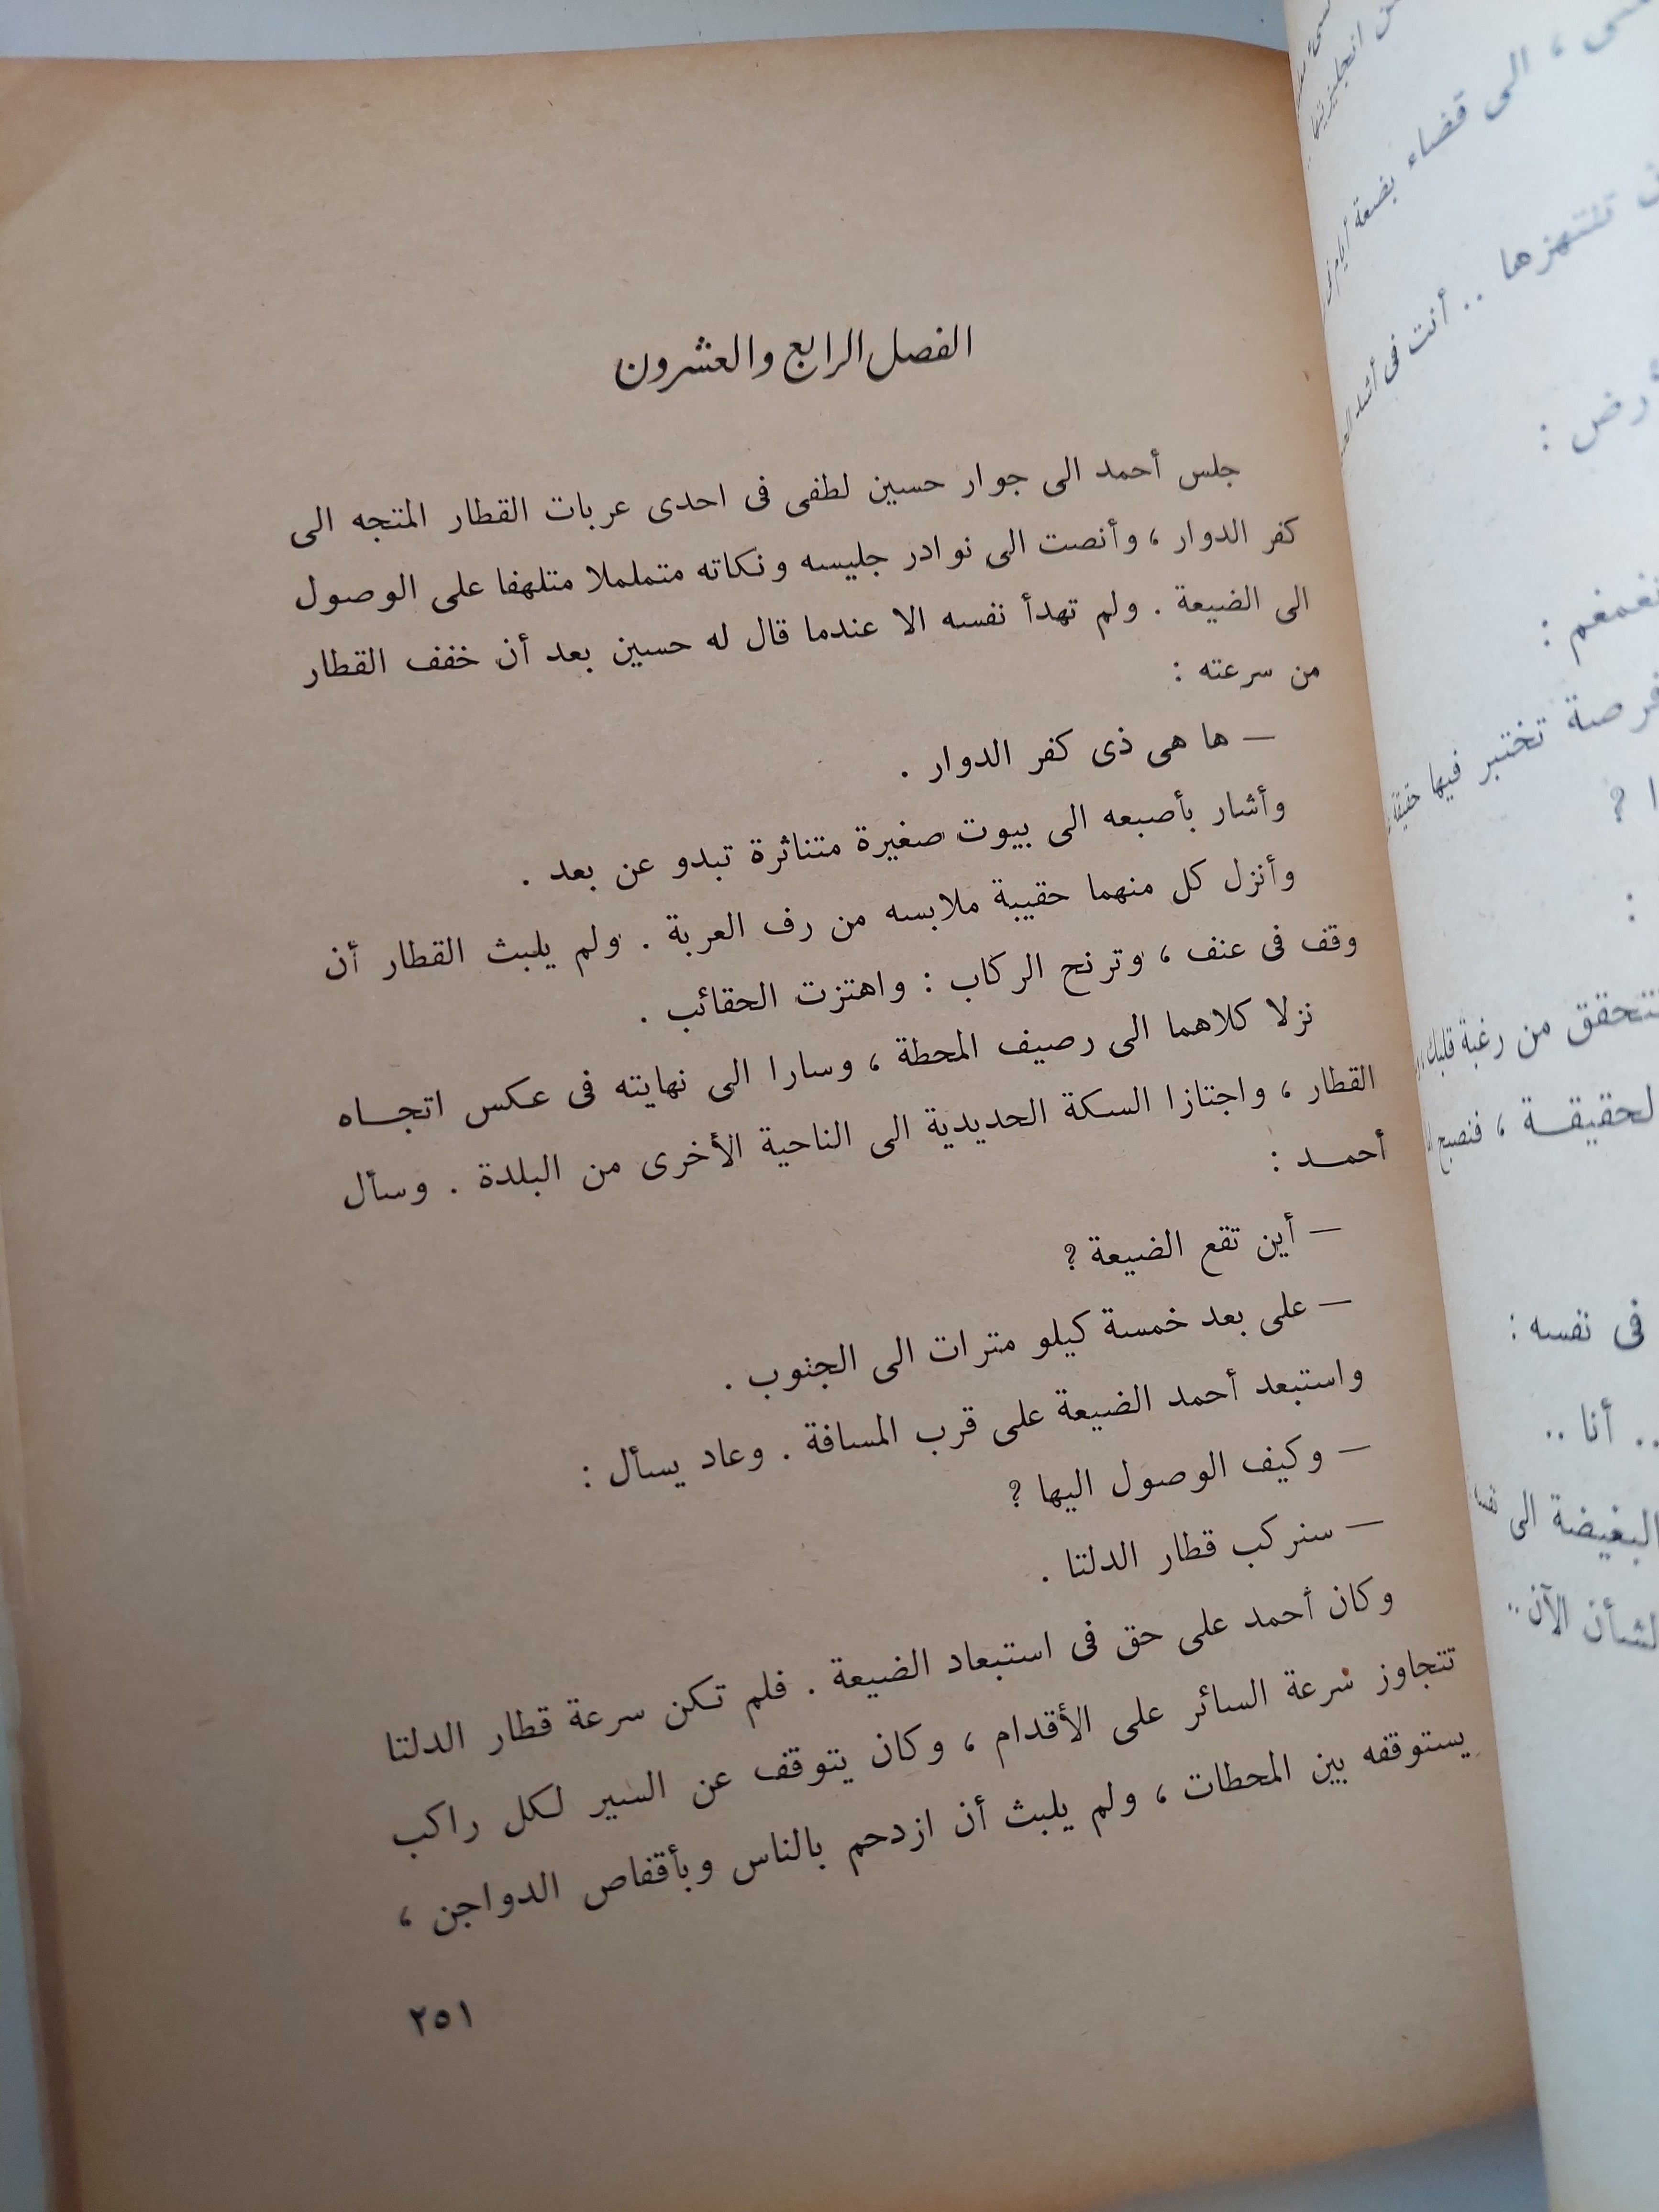 الفصل الرابع والعشرون
جلس أحمد الى جوار حسين لطفى فى احدى عربات القطار المتجه الى
كفر الدوار ، وأنصت الى نوادر جليسه ونكاته متململا متلهفا على الوصول
الى الضيعة . ولم تهدأ نفسه الا عندما قال له حسين بعد أن خفف القطار
من سرعته :
— ها هى ذى كفر الدوار .
وأشار بأصبعه الى بيوت صغيرة متناثرة تبدو عن بعد .
وأنزل كل منهما حقيبة ملابسه من رف العربة . ولم يلبث القطار أن
وقف فى عنف ، وترنح الركاب : واهتزت الحقائب .
نزلا كلاهما الى رصيف المحطة ، وسارا الى نهايته فى عكس اتجــاه
القطار ، واجتازا السكة الحديدية الى الناحية الأخرى من البلدة . وسأل
أحمــد :
— أين تقع الضيعة ؟
— على بعد خمسة كيلو مترات الى الجنوب .
واستبعد أحمد الضيعة على قرب المسافة . وعاد يسأل :
— وكيف الوصول اليها ؟
— سنركب قطار الدلتا .
وكان أحمد على حق فى استبعاد الضيعة . فلم تكن سرعة قطار الدلتا
تتجاوز سرعة السائر على الأقدام ، وكان يتوقف عن السير لكل راكب
يستوقفه بين المحطات ، ولم يلبث أن ازدحم بالناس وبأقفاص الدواجن ،
٢٥١
، الى قضاء بضعة أيام
تنتهزها .. أنت فى أشد
:
:
تختبر فيها حقيقة
؟
:
من رغبة قلبك
، فنصبح
فى نفسه :
.. أنا ..
البغيضة الى
الآن ..